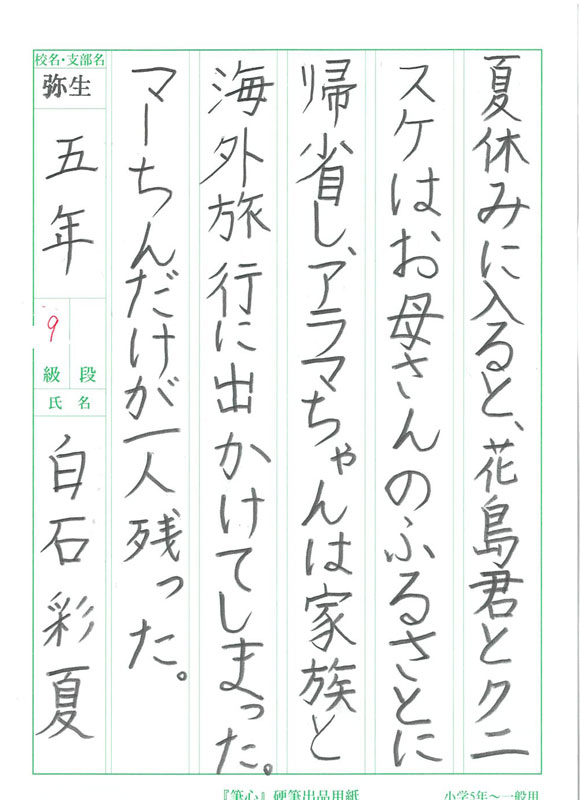 夏休みに入ると、花島君とクニ
スケはお母さんのふるさとに
帰省し、アラマちゃんは家族と
海外旅行に出かけてしまった。
マーちんだけが一人残った。
校名・支部名
弥生
五年
9
級 段
氏名
白石彩夏
『筆心』硬筆出品用紙
小学5年～一般用